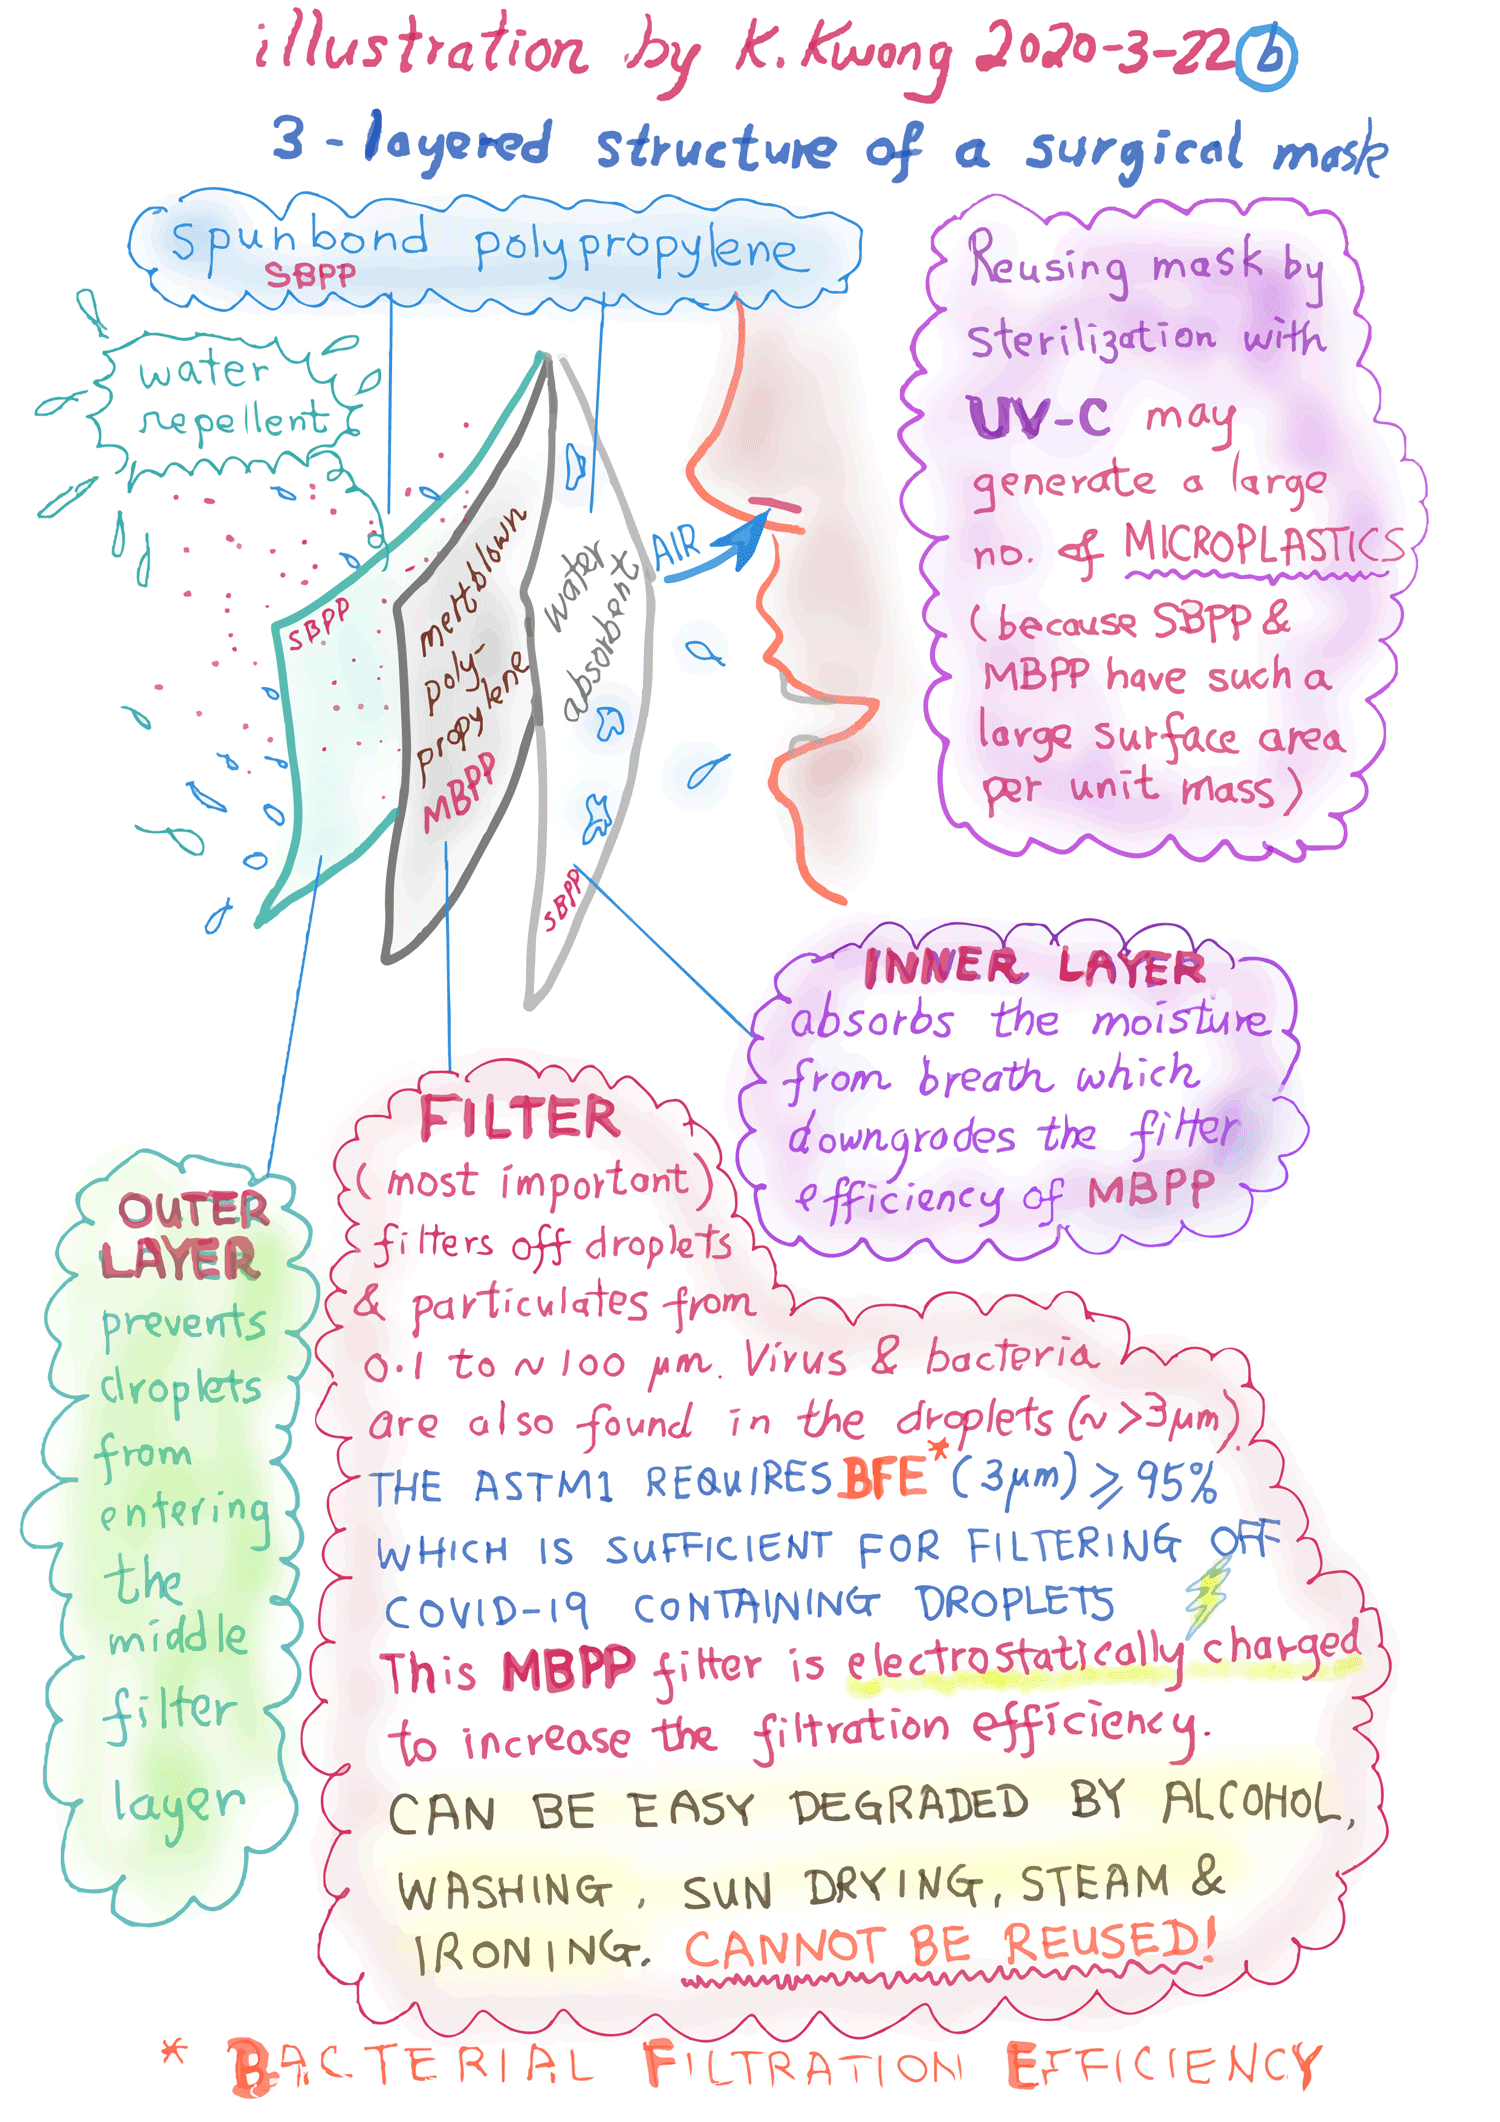 illustration by K. Kwong 2020-3-22 b
3-layered structure of a surgical mask
spunbond polypropylene
SBPP
water
repellent
SBPP
meltblown
poly-
propylene
MBPP
water
absorbent
SBPP
AIR
Reusing mask by
sterilization with
UV-C may
generate a large
no. of MICROPLASTICS
(because SBPP &
MBPP have such a
large surface area
per unit mass)
INNER LAYER
absorbs the moisture
from breath which
downgrades the filter
efficiency of MBPP
OUTER
LAYER
prevents
droplets
from
entering
the
middle
filter
layer
FILTER
(most important)
filters off droplets
& particulates from
0.1 to ~100 μm. Virus & bacteria
are also found in the droplets (~>3μm).
THE ASTM1 REQUIRES BFE* (3μm) ⩾ 95%
WHICH IS SUFFICIENT FOR FILTERING OFF
COVID-19 CONTAINING DROPLETS
This MBPP filter is electrostatically charged
to increase the filtration efficiency.
CAN BE EASY DEGRADED BY ALCOHOL,
WASHING, SUN DRYING, STEAM &
IRONING. CANNOT BE REUSED!
* BACTERIAL FILTRATION EFFICIENCY